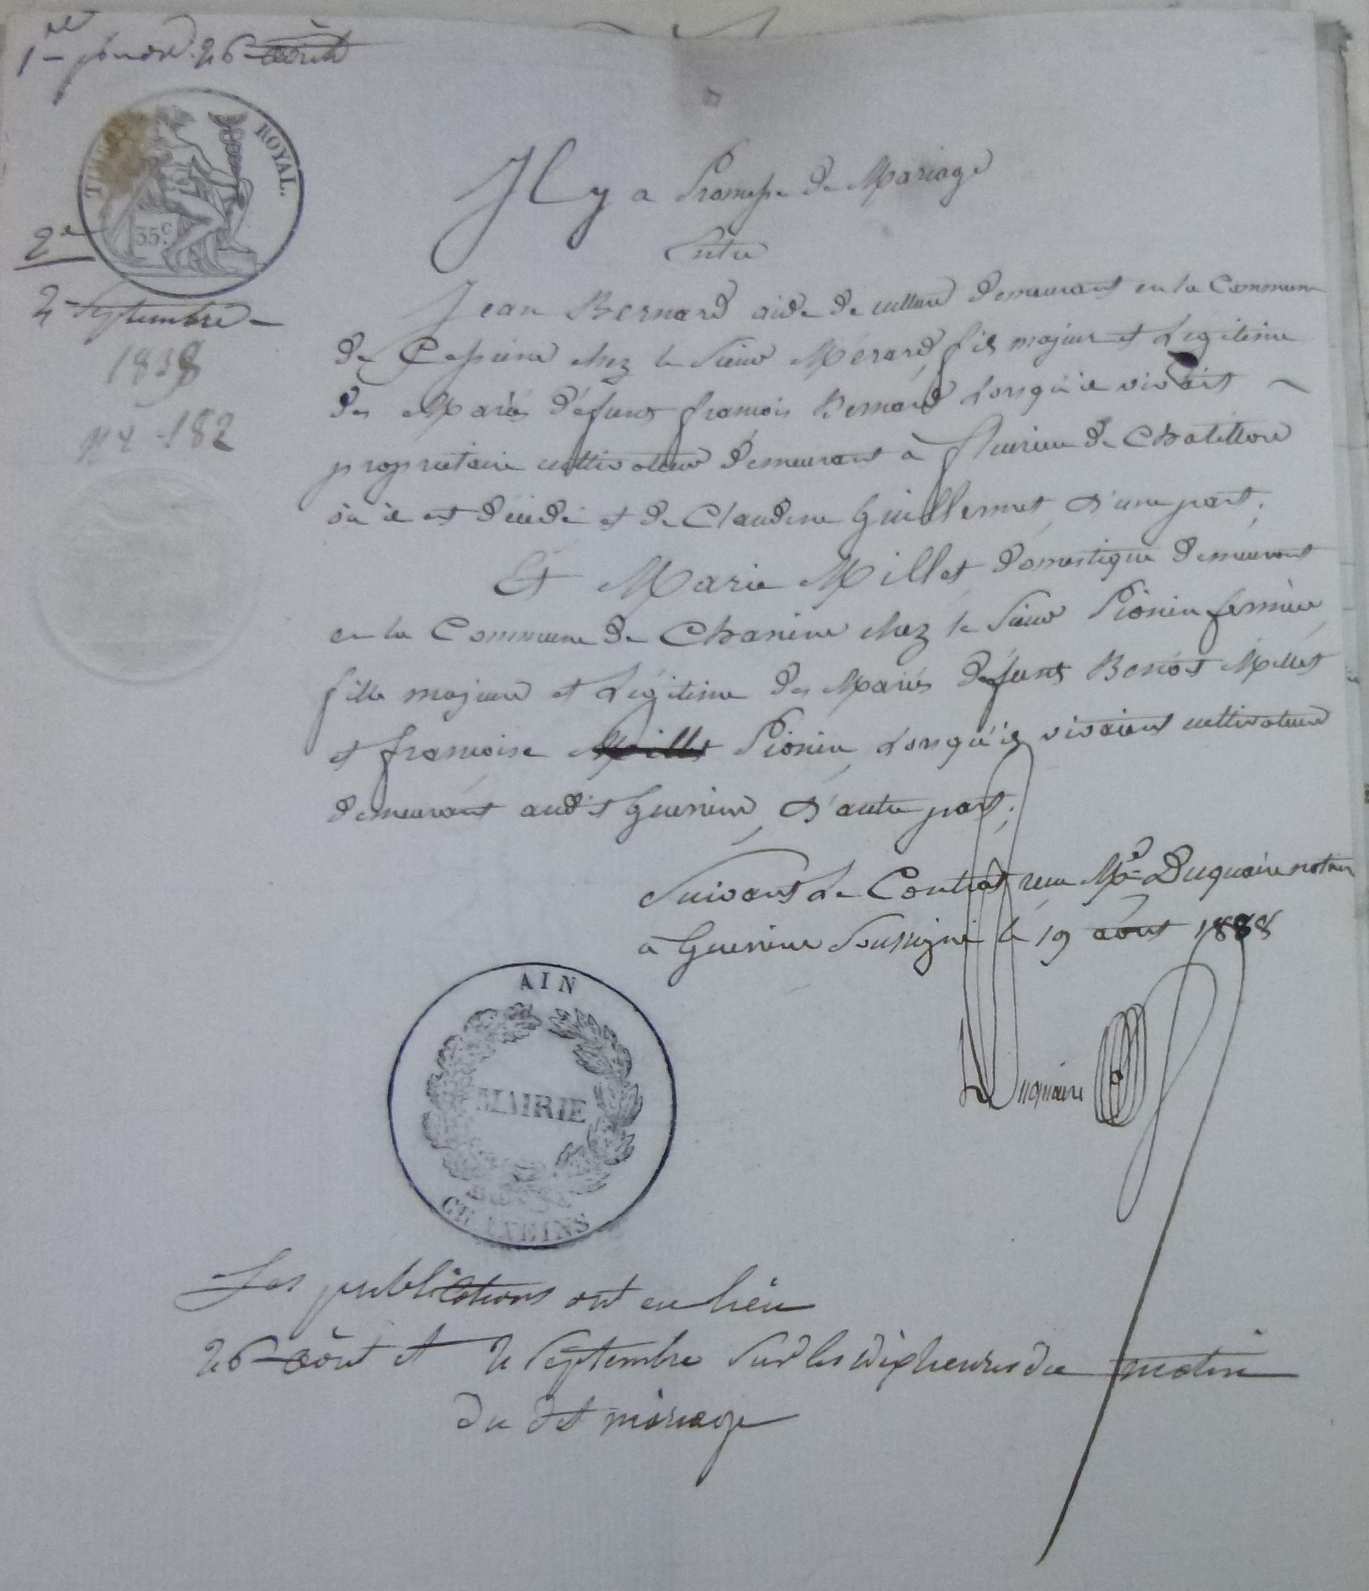 1re 26 août
TIMBRE ROYAL.
35c
2e
2 Septembre
1838
182
Il y a Promesse de Mariage
Entre
Jean Bernard aide de culture demeurant en la Commune
de chez le Sieur Mérard, fils majeur et Légitime
des Mariés défunt françois Bernard Lorsqu'il vivait
proprietaire cultivateur demeurant à fleurieu de Chatillon
où il est décédé et de Claudine Guillermet, d'une part;
Et Marie Millet domestique demeurant
en la Commune de Chaneins chez le Sieur Pionin fermier,
fille majeure et Légitime des Mariés défunts Benoit Millet
et françoise Pionin, Lorsqu'ils vivaient cultivateurs
demeurant audit Guereins, d'autre part;
Suivant Le Contrat reçu Me Duquaire notaire
à Guereins Soussigné le 19 août 1838
Duquaire
AIN
MAIRIE
Les publications ont eu lieu
26 août et 2 Septembre Sur les dix heures du matin
du dit mariage